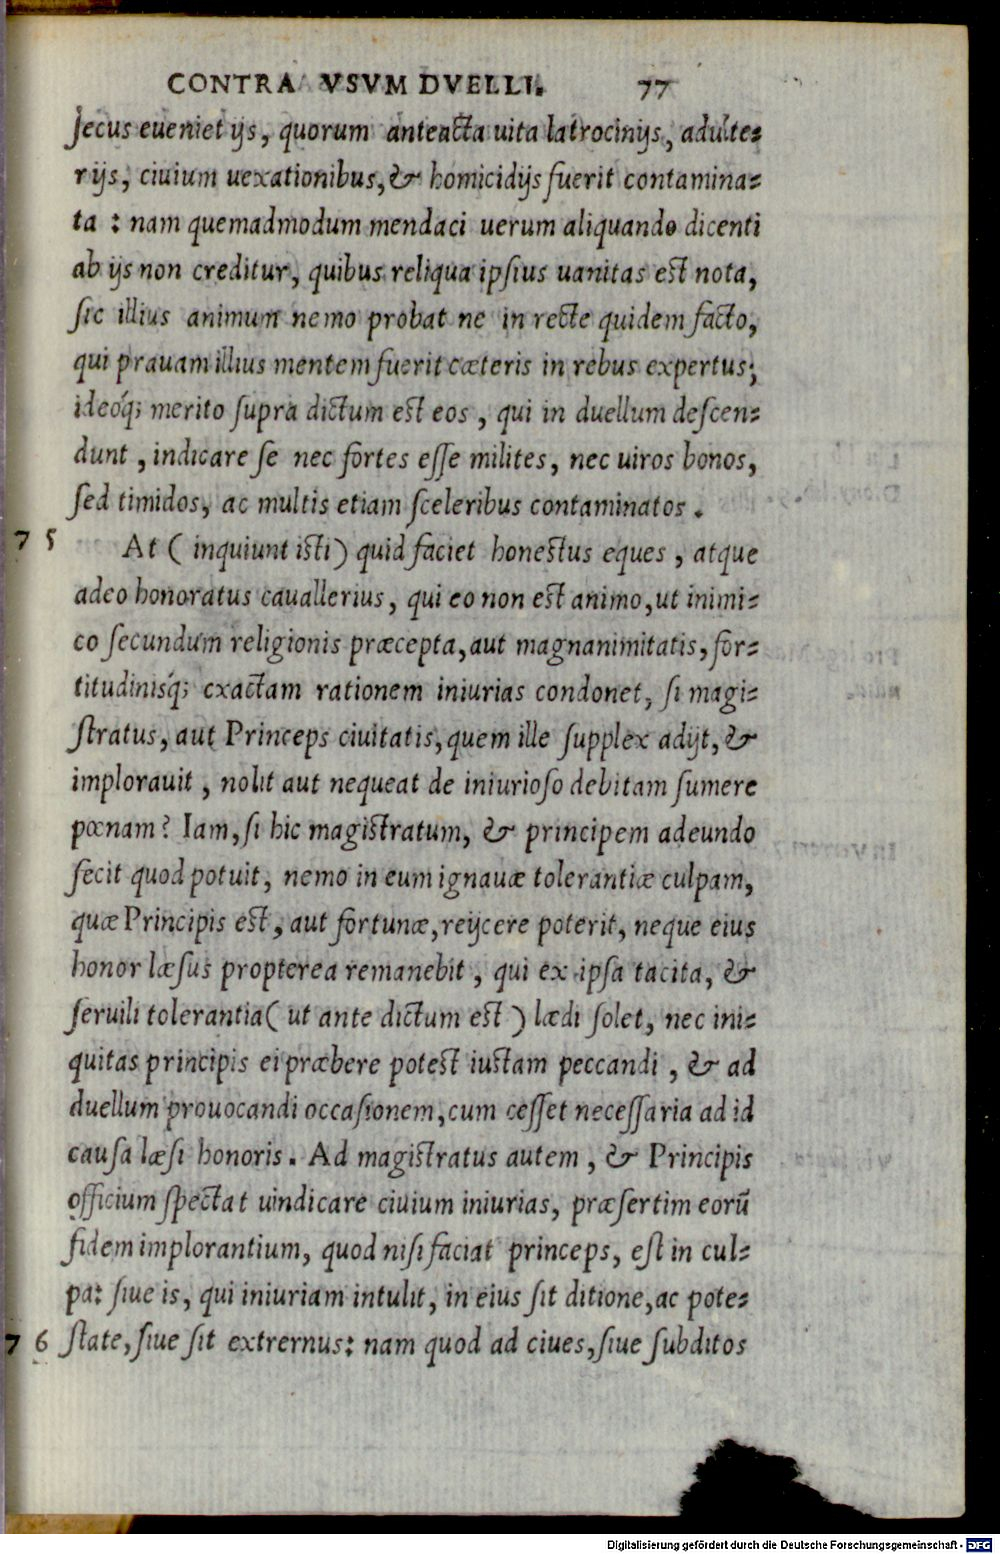 CONTRA VSVM DVELLI. 77
ſecus eueniet ijs, quorum anteacta uita latrocinijs, adulte-
rijs, ciuium uexationibus, & homicidijs fuerit contamina-
ta : nam quemadmodum mendaci uerum aliquando dicenti
ab ijs non creditur, quibus reliqua ipſius uanitas eſt nota,
ſic illius animum nemo probat ne in recte quidem facto,
qui prauam illius mentem fuerit cæteris in rebus expertus;
ideóq; merito ſupra dictum eſt eos, qui in duellum deſcen-
dunt, indicare ſe nec fortes eſſe milites, nec uiros bonos,
ſed timidos, ac multis etiam ſceleribus contaminatos.
75 At (inquiunt iſti) quid faciet honeſtus eques, atque
adeo honoratus cauallerius, qui eo non eſt animo, ut inimi-
co ſecundum religionis præcepta, aut magnanimitatis, for-
titudinisq́; exactam rationem iniurias condonet, ſi magi-
ſtratus, aut Princeps ciuitatis, quem ille ſupplex adijt, &
implorauit, nolit aut nequeat de iniurioſo debitam ſumere
pœnam? Iam, ſi hic magiſtratum, & principem adeundo
fecit quod potuit, nemo in eum ignauæ tolerantiæ culpam,
quæ Principis eſt, aut fortunæ, reijcere poterit, neque eius
honor læſus propterea remanebit, qui ex ipſa tacita, &
ſeruili tolerantia (ut ante dictum eſt) lædi ſolet, nec ini-
quitas principis ei præbere poteſt iuſtam peccandi, & ad
duellum prouocandi occaſionem, cum ceſſet neceſſaria ad id
cauſa læſi honoris. Ad magiſtratus autem, & Principis
officium ſpectat uindicare ciuium iniurias, præſertim eorũ
fidem implorantium, quod niſi faciat princeps, eſt in cul-
pa: ſiue is, qui iniuriam intulit, in eius ſit ditione, ac pote-
76 ſtate, ſiue ſit extrernus: nam quod ad ciues, ſiue ſubditos
Digitalisierung gefördert durch die Deutsche Forschungsgemeinschaft - DFG